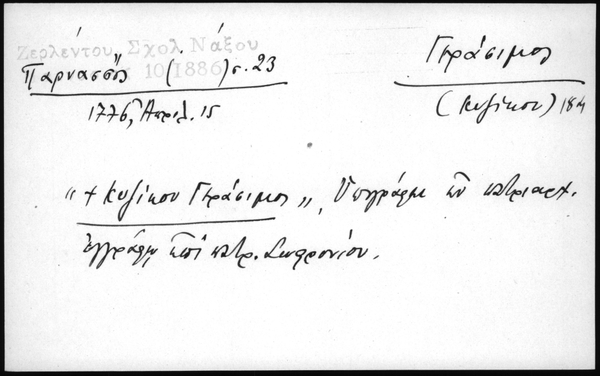 Ζερλέντου, Σχολ. Νάξου
Παρνασσός ( 10/1886) σ. 23
1776, Ἀπριλ. 15
Γεράσιμος
(Κυζίκου) 184
"+ Κυζίκου Γεράσιμος", Ὑπογράφει ἐν πατριαρχ.
ἐγγράφῳ ἐπὶ πατρ. Σωφρονίου.